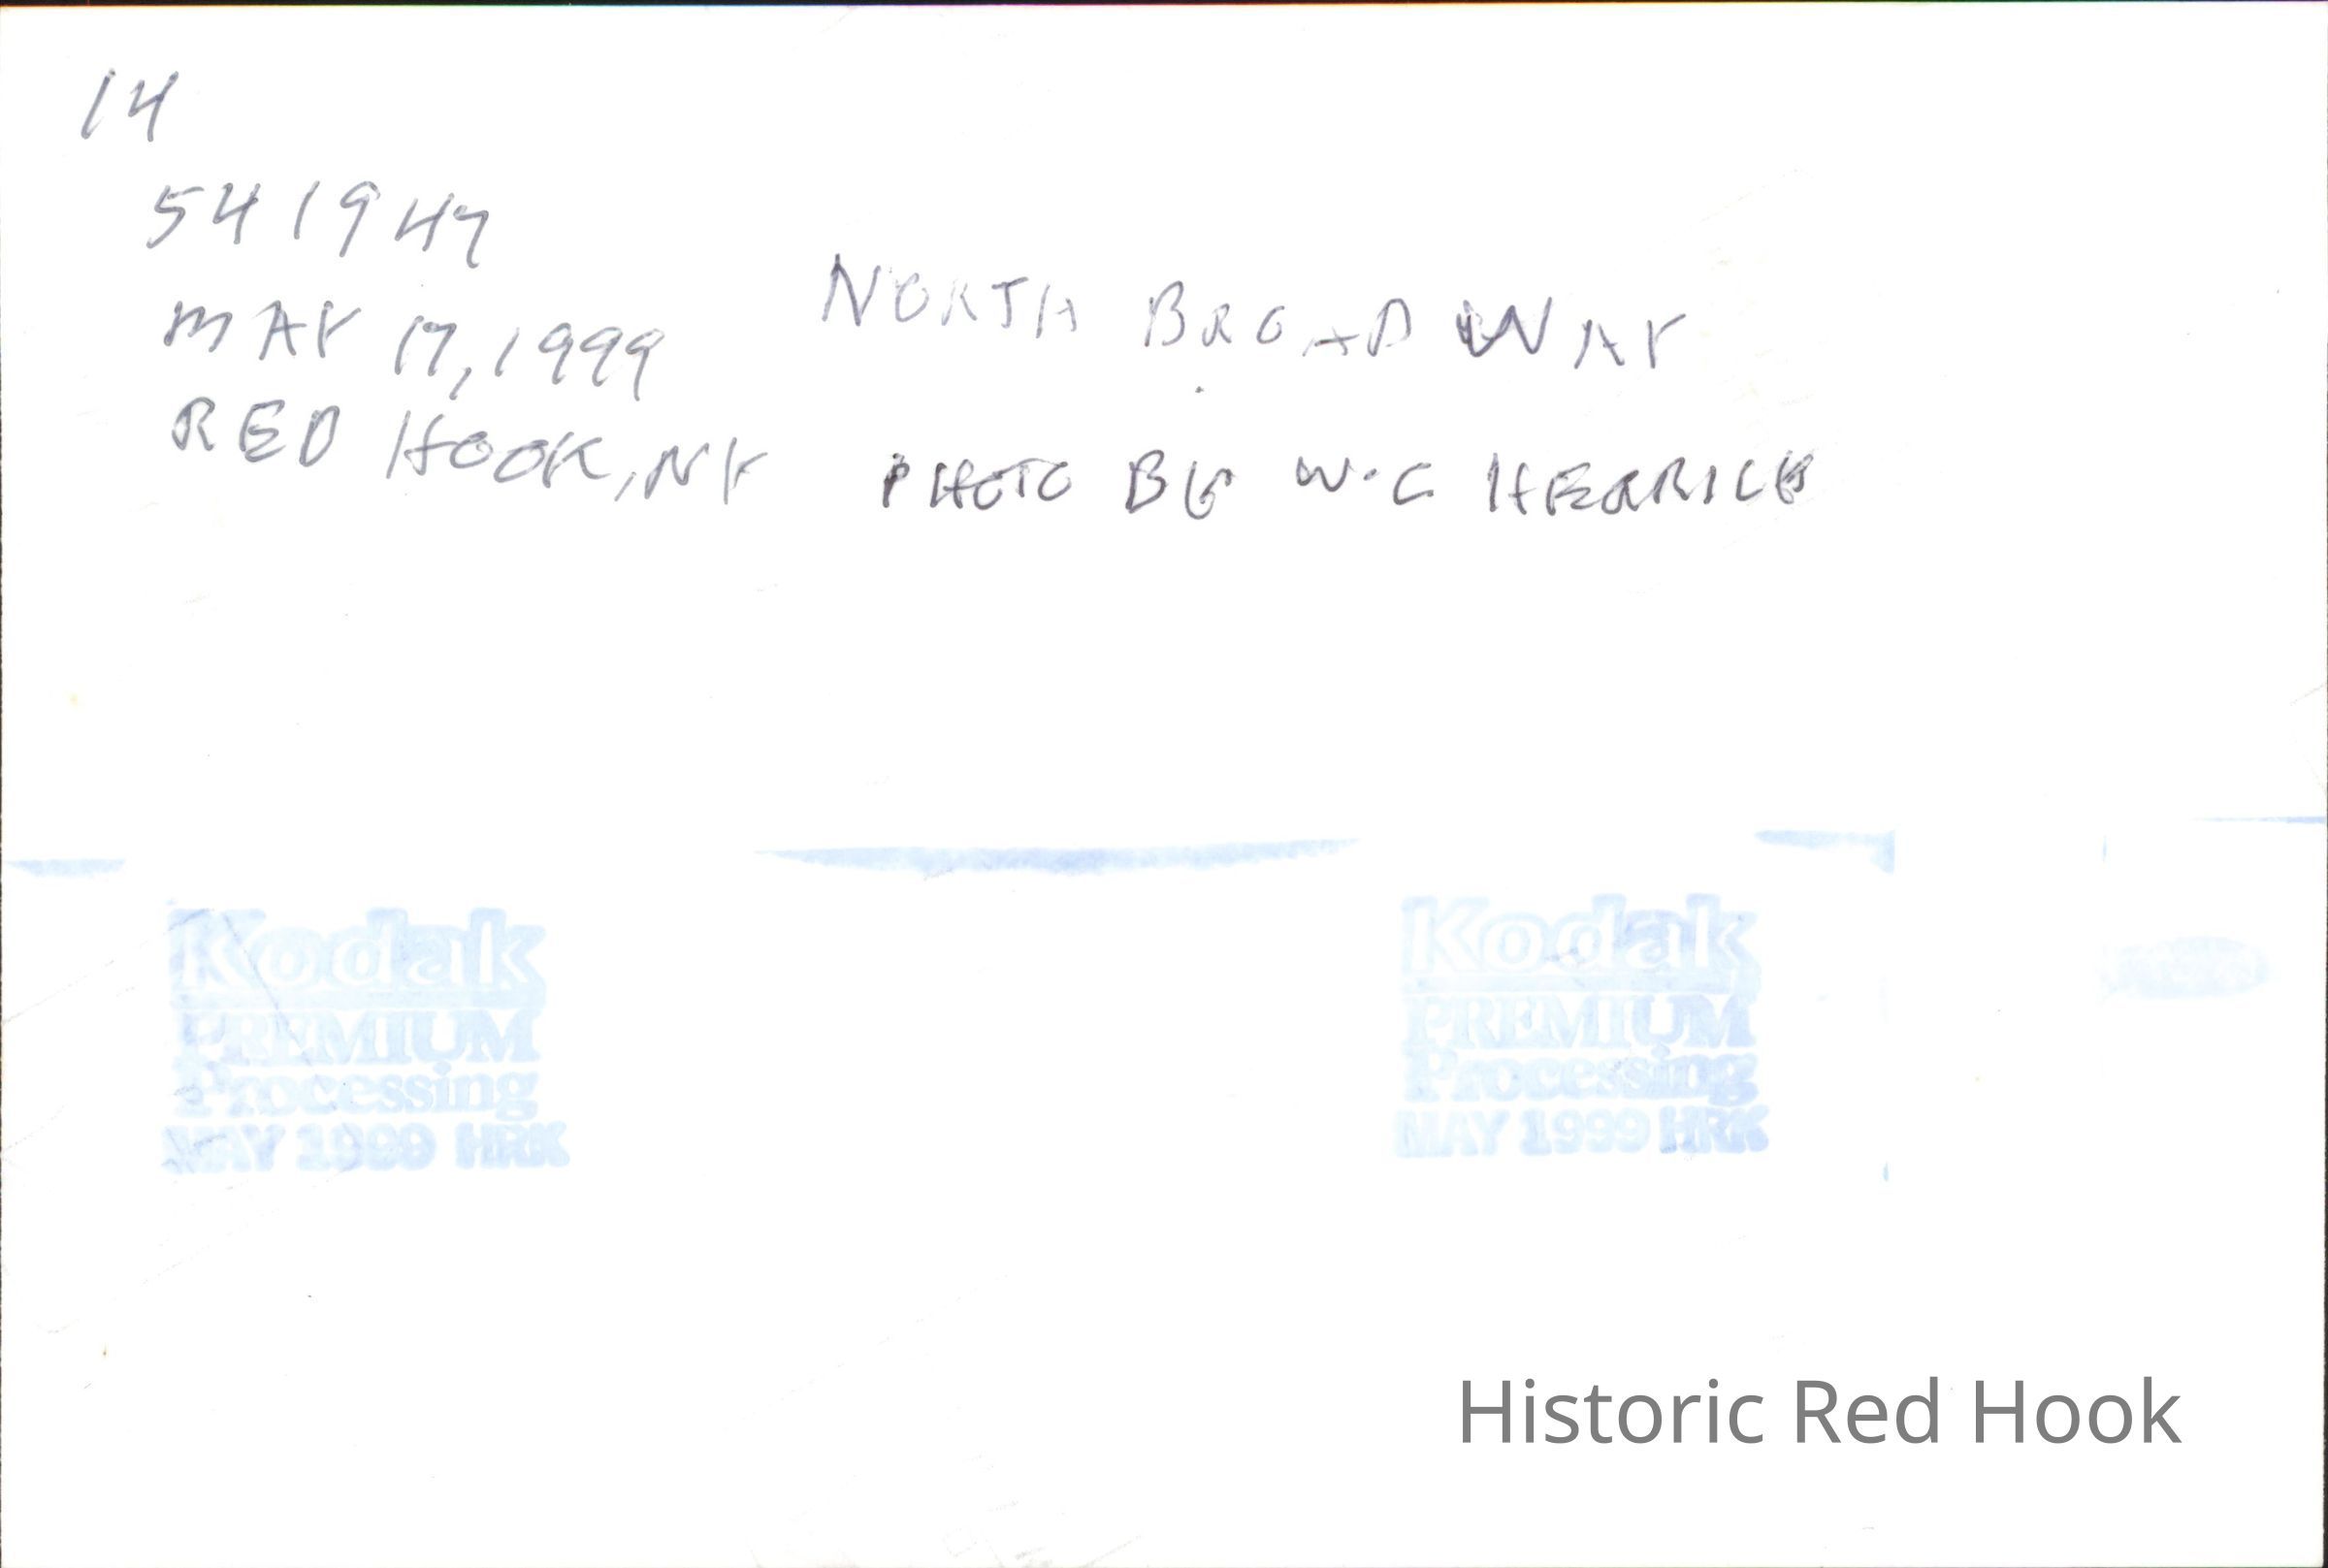 14
541947
MAY 17, 1999
RED HOOK, NY
NORTH BROADWAY
PHOTO BY W.C HERRICK
Kodak
PREMIUM
Processing
MAY 1999 HRK
Kodak
PREMIUM
Processing
MAY 1999 HRK
Historic Red Hook